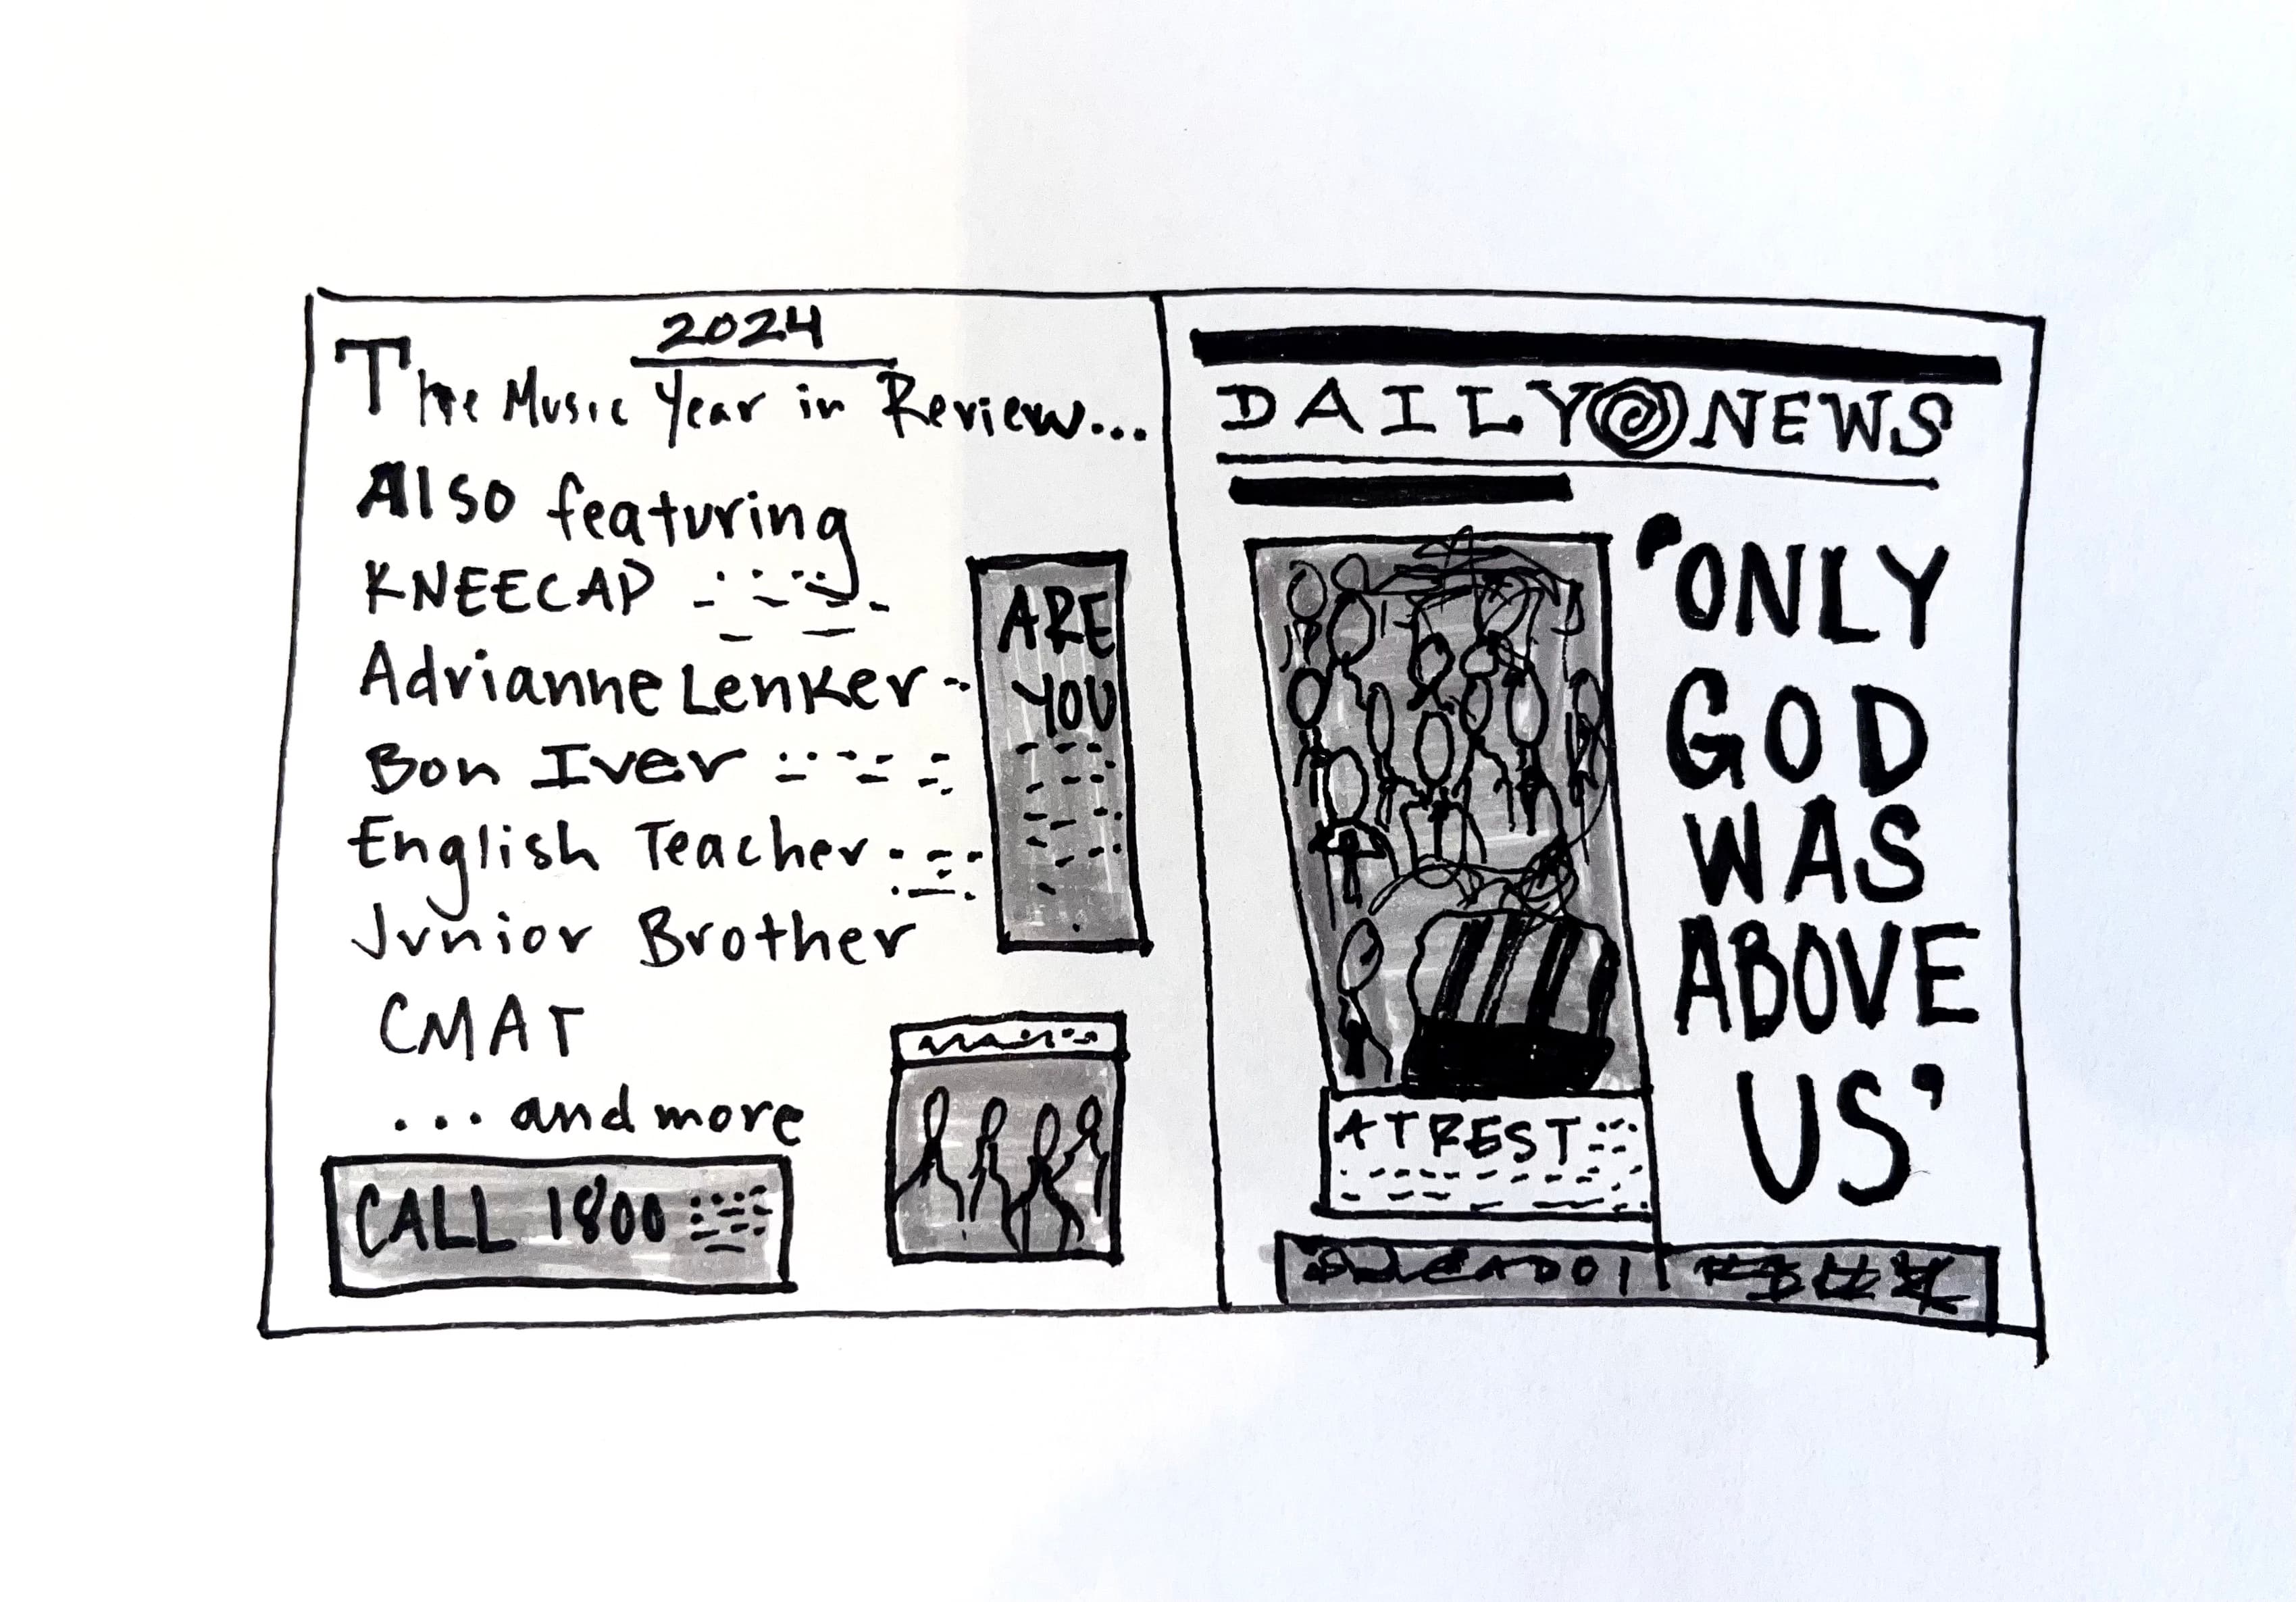 2024
The Music Year in Review...
Also featuring
KNEECAP
Adrianne Lenker
Bon Iver
English Teacher
Junior Brother
CMAT
...and more
CALL 1800
ARE
YOU
DAILY NEWS
'ONLY
GOD
WAS
ABOVE
US'
AT REST